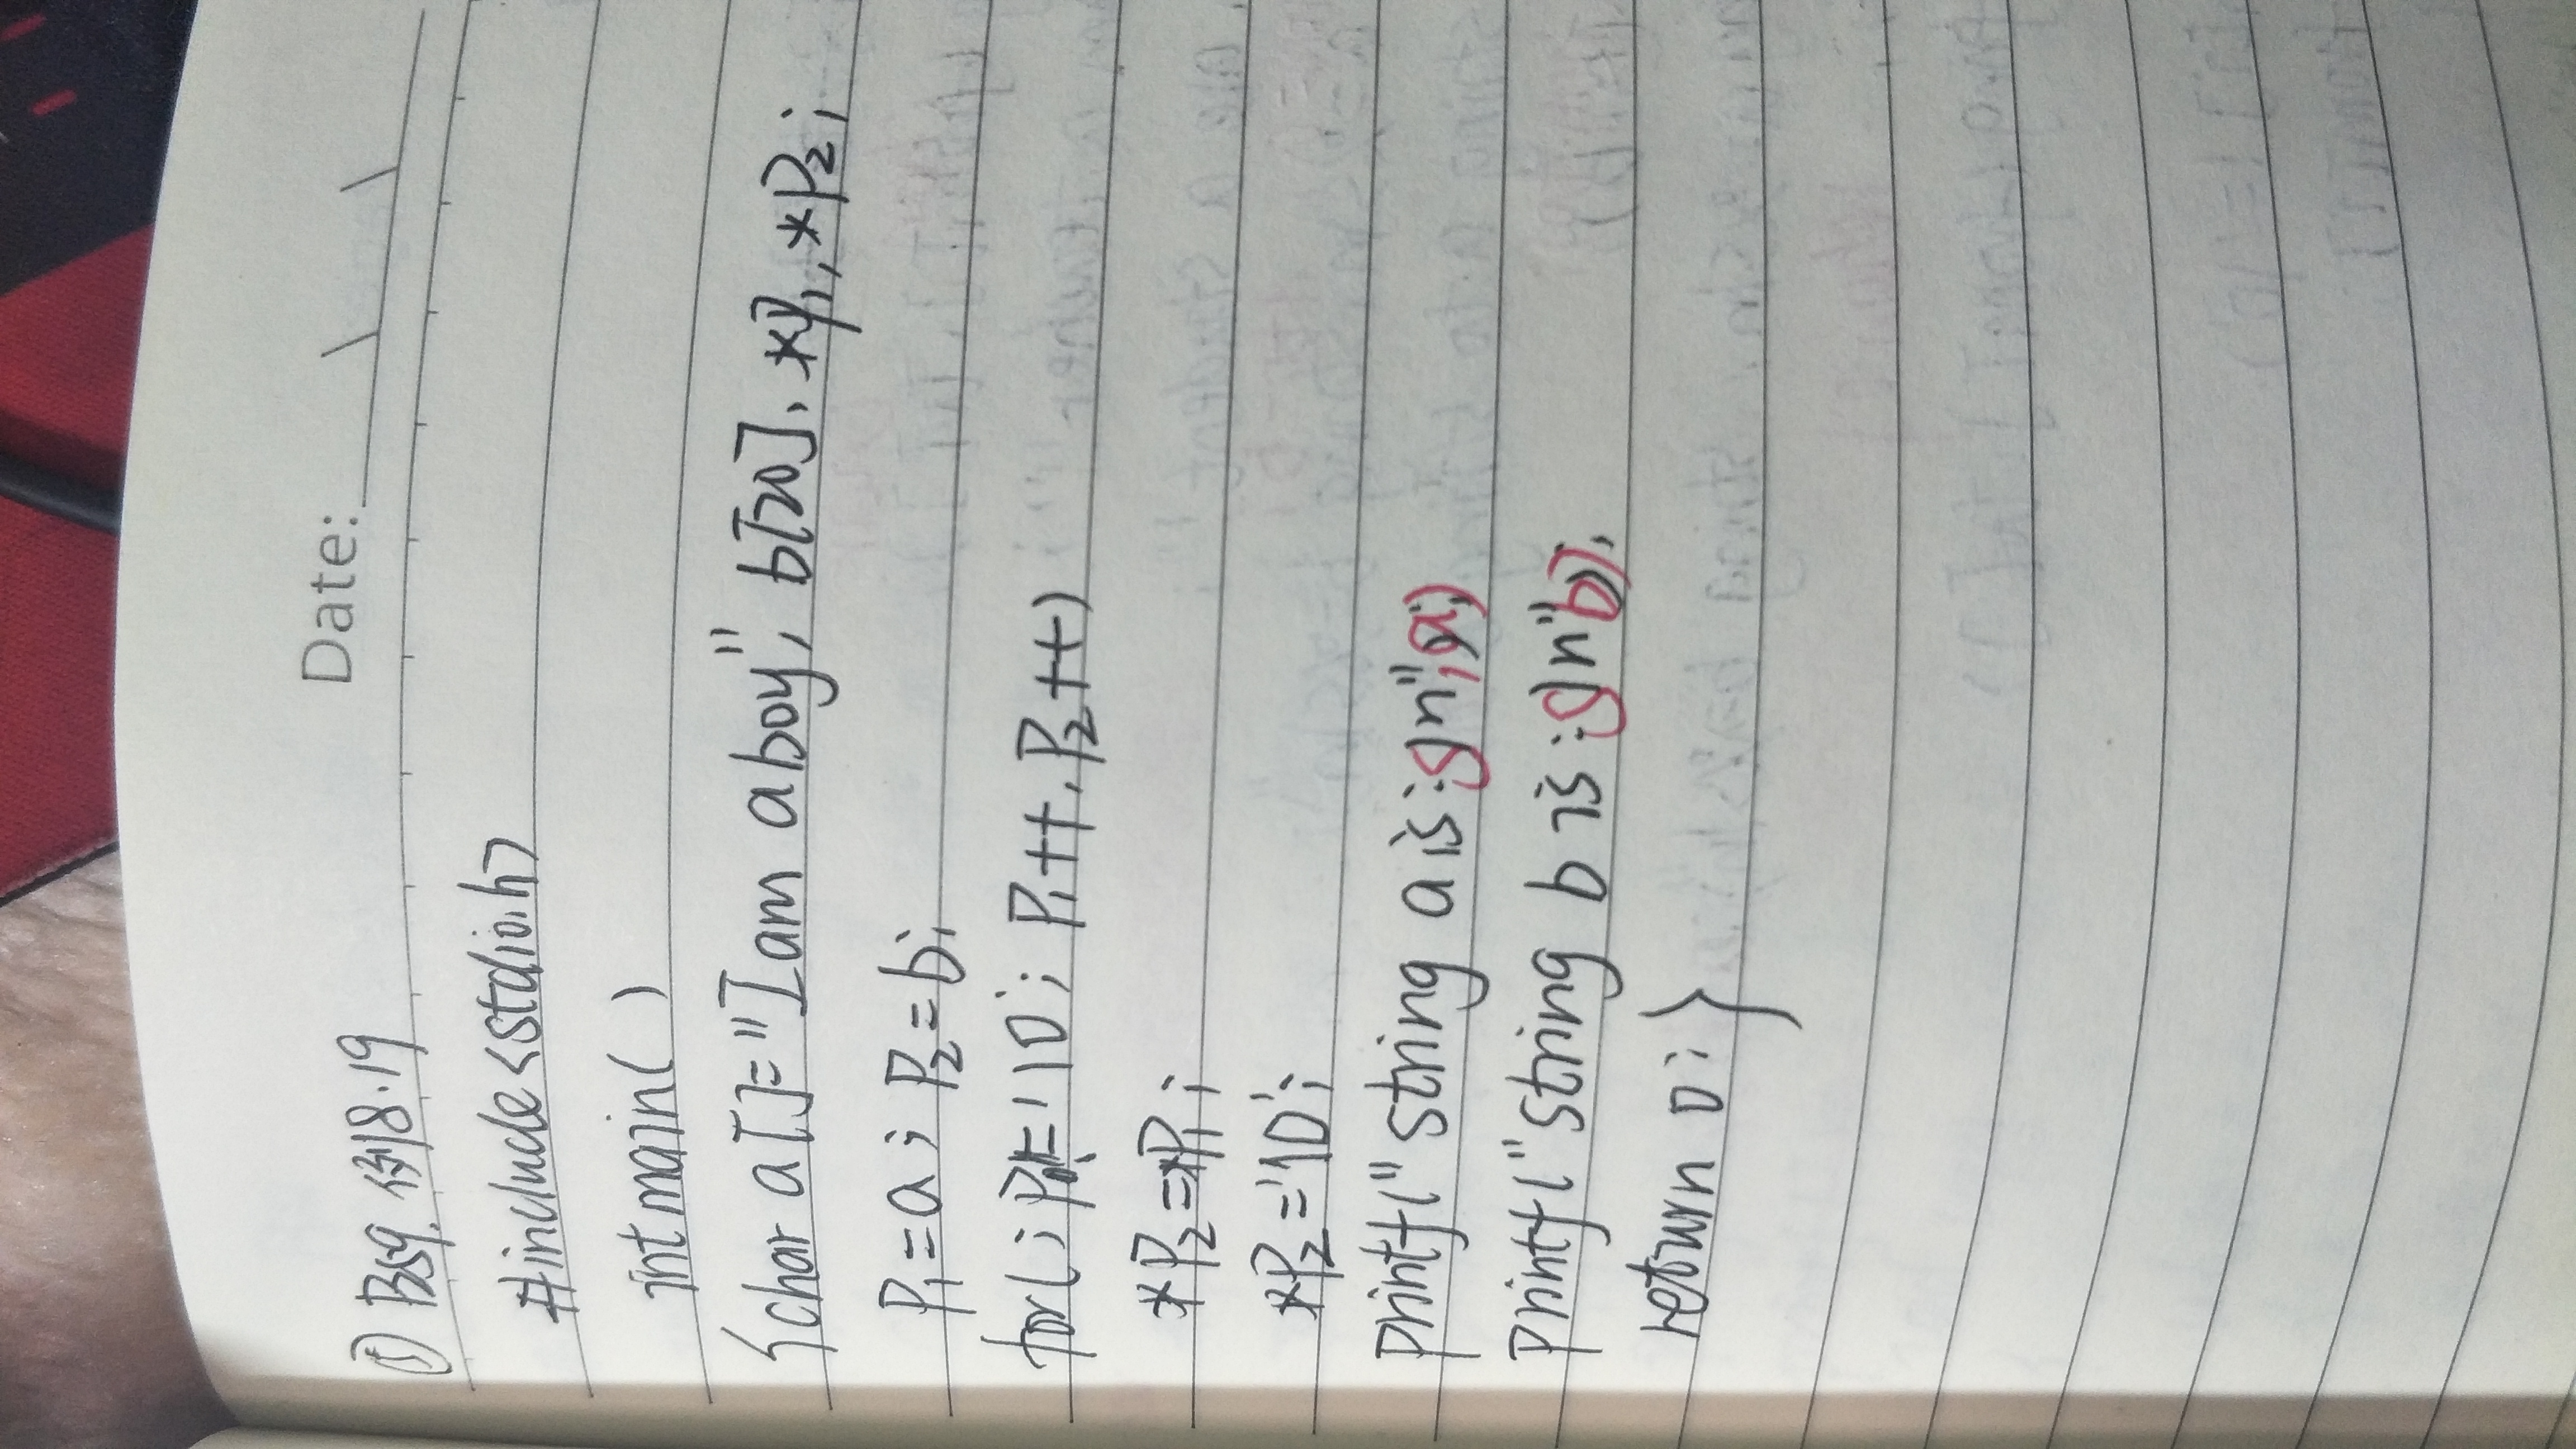 Date:
⑤ P259. 例8.19
#include<stdio.h>
int main( )
{char a[]="I am a boy", b[20], *p1, *p2;
p1=a; p2=b;
for(; p1!='\0'; p1++, p2++)
*p2=*p1;
*p2='\0';
printf("string a is:s\n",a);
printf("string b is:s\n"b);
return 0;}